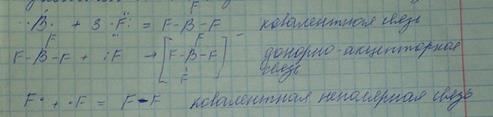 F
·Ḃ· + 3 ·F̈: = F-B-F ковалентная связь
F F -
F-B-F + :F → [F-B-F] донорно-акцепторная
F связь
F· + ·F = F-F ковалентная неполярная связь